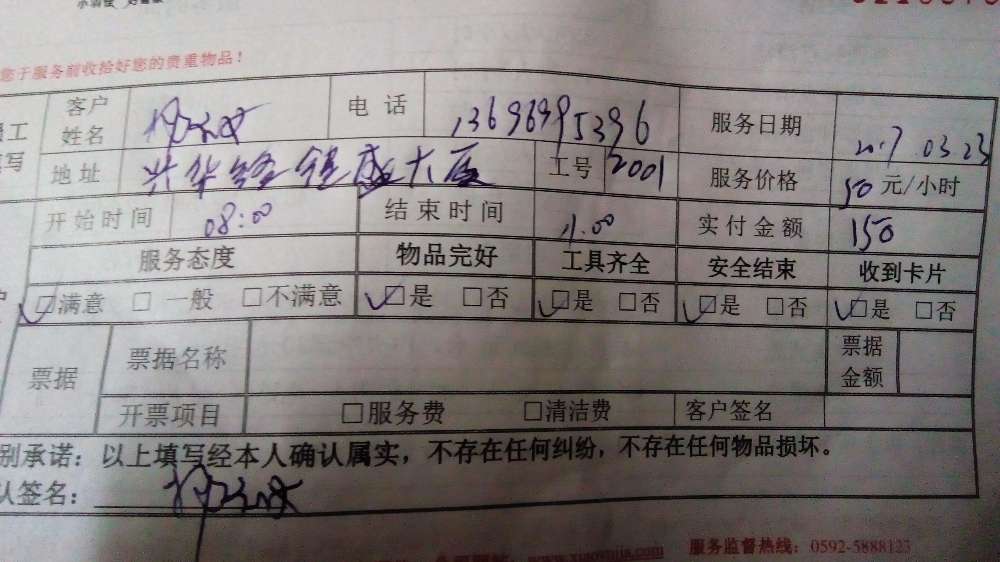 您于服务前收拾好您的贵重物品！
客户姓名 电话 13696995396 服务日期 2017.03.23
地址 大厦 工号 2001 服务价格 50元/小时
开始时间 08:00 结束时间 11.00 实付金额 150
服务态度 物品完好 工具齐全 安全结束 收到卡片
☑满意 □一般 □不满意 ☑是 □否 ☑是 □否 ☑是 □否 ☑是 □否
票据 票据名称 票据金额
开票项目 □服务费 □清洁费 客户签名
别承诺：以上填写经本人确认属实，不存在任何纠纷，不存在任何物品损坏。
认签名：
服务监督热线：0592-5888123